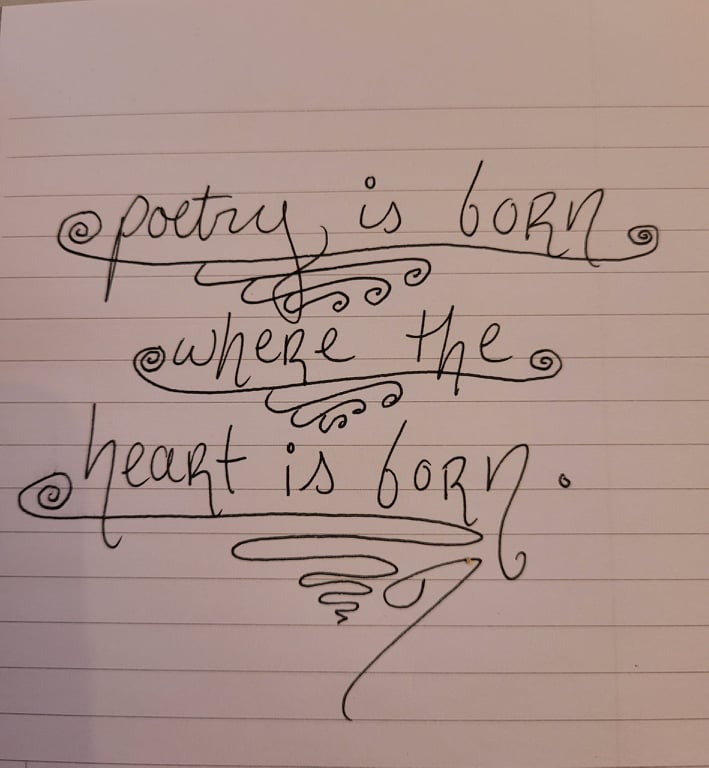 poetry is born
where the
heart is born.